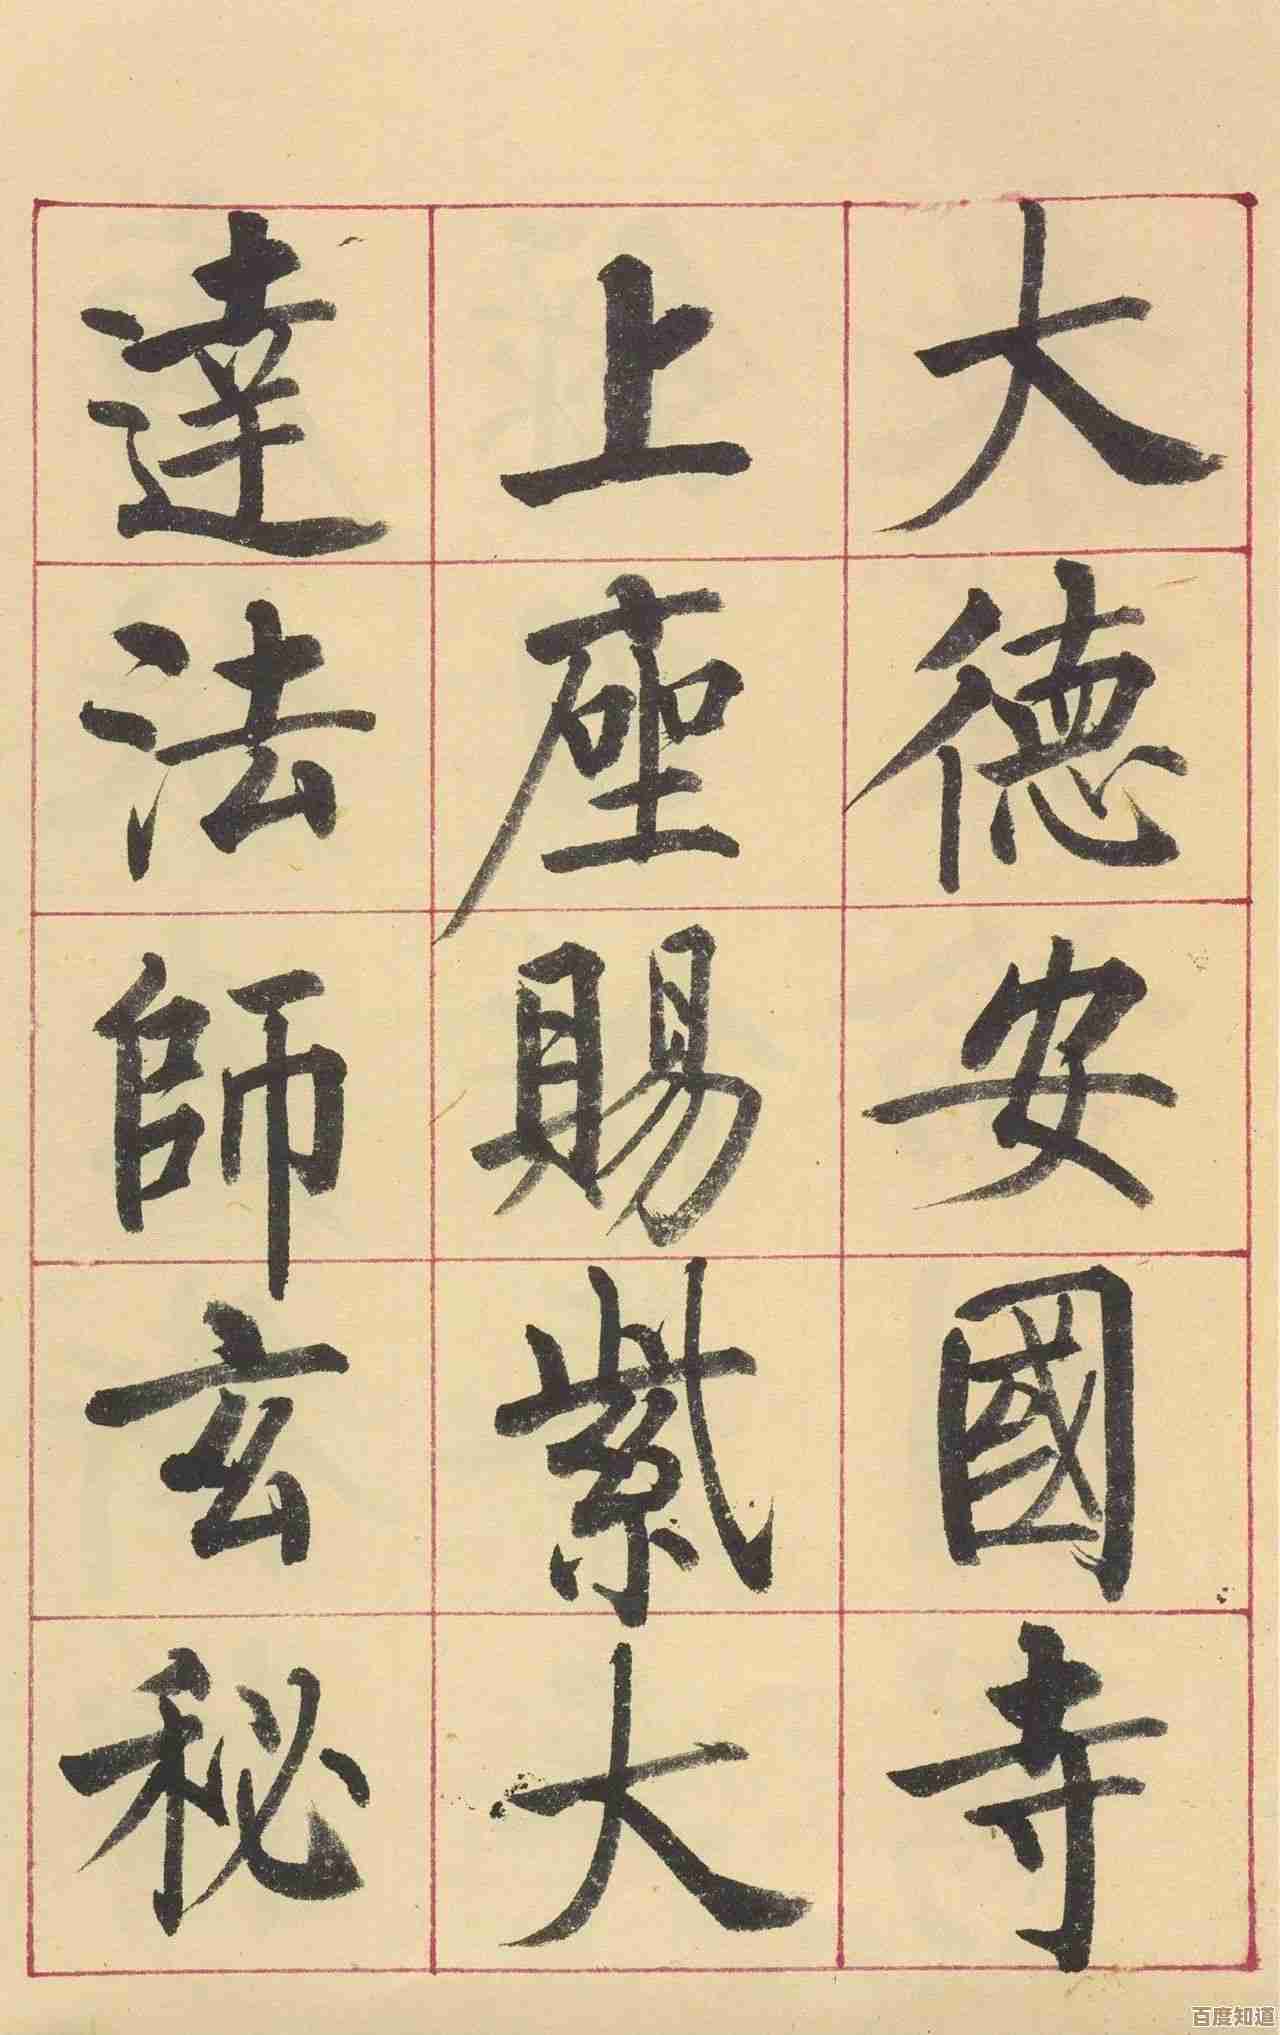 大德安國寺
上座賜紫大
達法師玄秘
百度知道